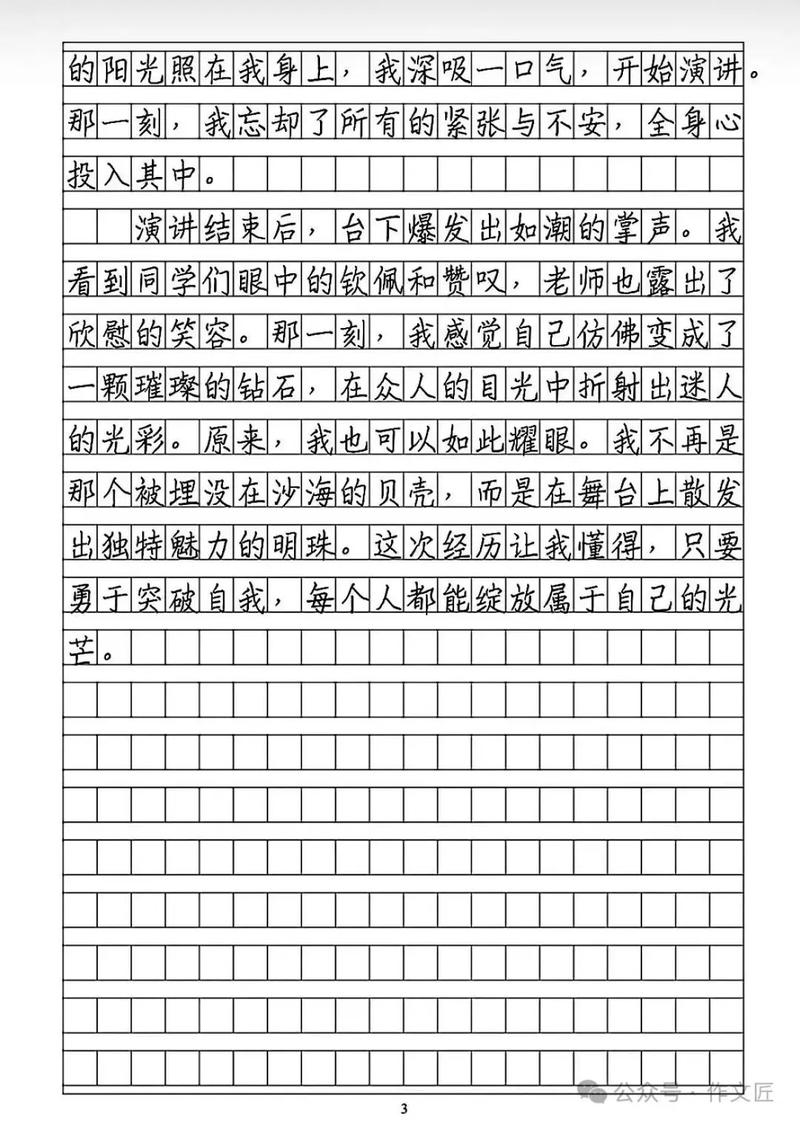 的阳光照在我身上，我深吸一口气，开始演讲。
那一刻，我忘却了所有的紧张与不安，全身心
投入其中。
演讲结束后，台下爆发出如潮的掌声。我
看到同学们眼中的钦佩和赞叹，老师也露出了
欣慰的笑容。那一刻，我感觉自己仿佛变成了
一颗璀璨的钻石，在众人的目光中折射出迷人
的光彩。原来，我也可以如此耀眼。我不再是
那个被埋没在沙海的贝壳，而是在舞台上散发
出独特魅力的明珠。这次经历让我懂得，只要
勇于突破自我，每个人都能绽放属于自己的光
芒。
公众号·作文匠
3